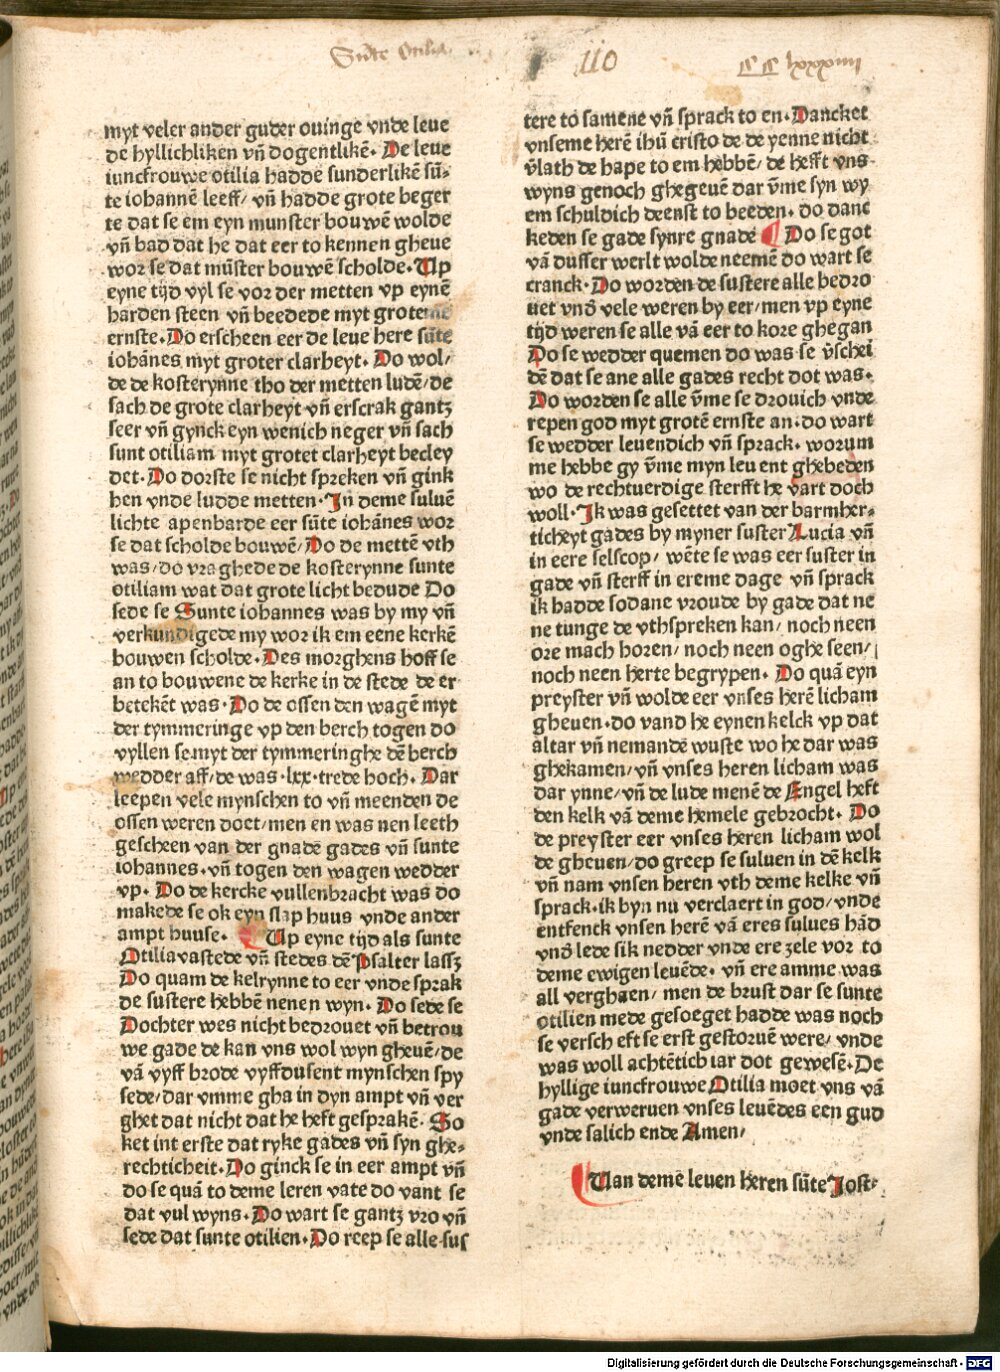 Sūte Otilia
110
CC lxxxxiiii
myt veler ander guder ouinge vnde leue
de hyllichliken vn̄ dogentlikē. De leue
iuncfrouwe otilia hadde sunderlikē sū-
te iohannē leeff/ vn̄ hadde grote beger
te dat se em eyn munster bouwē wolde
vn̄ bad dat he dat eer to kennen gheue
wor se dat mūster bouwē scholde. Up
eyne tijd vyl se vor der metten vp eynē
harden steen vn̄ beedede myt groteme
ernste. Do erscheen eer de leue here sūte
iohānes myt groter clarheyt. Do wol/
de de kosterynne tho der metten ludē/ de
sach de grote clarheyt vn̄ erscrak gantz
seer vn̄ gynck eyn wenich neger vn̄ sach
sunt otiliam myt grotet clarheyt becley
det. Do dorste se nicht spreken vn̄ gink
hen vnde ludde metten. In deme suluē
lichte apenbarde eer sūte iohānes wor
se dat scholde bouwē/ Do de mettē vth
was/ do vraghede de kosterynne sunte
otiliam wat dat grote licht bedude Do
sede se Sunte iohannes was by my vn̄
verkundigede my wor ik em eene kerkē
bouwen scholde. Des morghens hoff se
an to bouwene de kerke in de stede de er
betekēt was. Do de ossen den wagē myt
der tymmeringe vp den berch togen do
vyllen se myt der tymmeringhe dē berch
wedder aff/ de was .lxx. trede hoch. Dar
leepen vele mynschen to vn̄ meenden de
ossen weren doet/ men en was nen leeth
gescheen van der gnadē gades vn̄ sunte
iohannes. vn̄ togen den wagen wedder
vp. Do de kercke vullenbracht was do
makede se ok eyn slap huus vnde ander
ampt huuse. Up eyne tijd als sunte
Otilia vastede vn̄ stedes dē Psalter lassz
Do quam de kelrynne to eer vnde sprak
de sustere hebbē nenen wyn. Do sede se
Dochter wes nicht bedrouet vn̄ betrou
we gade de kan vns wol wyn gheuē/ de
vā vyff brode vyffdusent mynschen spy
sede/ dar vmme gha in dyn ampt vn̄ ver
ghet dat nicht dat he heft gesprakē. So
ket int erste dat ryke gades vn̄ syn ghe-
rechticheit. Do ginck se in eer ampt vn̄
do se quā to deme leren vate do vant se
dat vul wyns. Do wart se gantz vro vn̄
sede dat sunte otilien. Do reep se alle sus
tere to samene vn̄ sprack to en. Dancket
vnseme herē ihū cristo de de yenne nicht
v̄lath de hape to em hebbē/ de hefft vns
wyns genoch ghegeuē dar v̄me syn wy
em schuldich deenst to beeden. do danc
keden se gade synre gnade Do se got
vā dusser werlt wolde neemē do wart se
cranck. Do worden de sustere alle bedro
uet vnd̄ vele weren by eer/ men vp eyne
tijd weren se alle vā eer to kore ghegan
Do se wedder quemen do was se v̄schei
dē dat se ane alle gades recht dot was.
Do worden se alle v̄me se drouich vnde
repen god myt grotē ernste an. do wart
se wedder leuendich vn̄ sprack. worum
me hebbe gy v̄me myn leuent ghebeden
wo de rechtuerdige sterfft he vart doch
woll. Ik was gesettet van der barmher-
ticheyt gades by myner suster Lucia vn̄
in eere selscop/ wēte se was eer suster in
gade vn̄ sterff in ereme dage vn̄ sprack
ik hadde sodane vroude by gade dat ne
ne tunge de vthspreken kan/ noch neen
ore mach horen/ noch neen oghe seen/
noch neen herte begrypen. Do quā eyn
preyster vn̄ wolde eer vnses herē licham
gheuen. do vand he eynen kelck vp dat
altar vn̄ nemandē wuste wo he dar was
ghekamen/ vn̄ vnses heren licham was
dar ynne/ vn̄ de lude menē de Engel heft
den kelk vā deme hemele gebrocht. Do
de preyster eer vnses heren licham wol
de gheuen/ do greep se suluen in dē kelk
vn̄ nam vnsen heren vth deme kelke vn̄
sprack. ik byn nu verclaert in god/ vnde
entfenck vnsen herē vā eres sulues hād
vnd̄ lede sik nedder vnde ere zele vor to
deme ewigen leuēde. vn̄ ere amme was
all verghaen/ men de brust dar se sunte
otilien mede gesoeget hadde was noch
se versch eft se erst gestoruē were/ vnde
was woll achtētich iar dot gewesē. De
hyllige iuncfrouwe Otilia moet vns vā
gade verweruen vnses leuēdes een gud
vnde salich ende Amen/
Uan demē leuen heren sūte Jost.
Digitalisierung gefördert durch die Deutsche Forschungsgemeinschaft - DFG